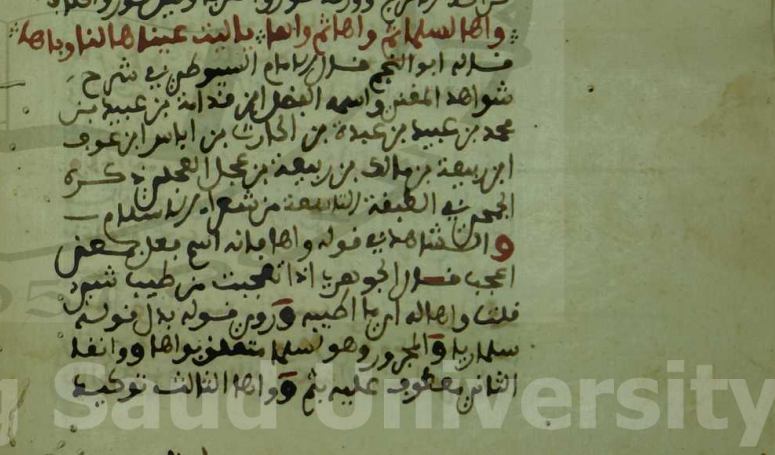 واها لسلمى ثم واها ثم واها يا ليت عيناها لنا وفاها
قاله ابو النجم قال الامام السيوطي في شرح
شواهد المغني واسمه الفضل ابن قدامة بن عبيد بن
محمد بن عبيد بن عبدة بن الحارث بن اياس ابن عوف
ابن ربيعة بن مالك بن ربيعة بن عجل العجلي ذكره
الجمحي في الطبقة التاسعة من شعراء الاسلام
والشاهد في قوله واها فانه اسم فعل بمعنى
اعجب قال الجوهري اذا تعجبت من طيب شيء
قلت واها له اي ما اطيبه وروي قوله بدل قوله
سلما ريا والمجرور وهو لسلما متعلق بواها وواها
الثاني معطوف عليه بثم وواها الثالث توكيد
King Saud University